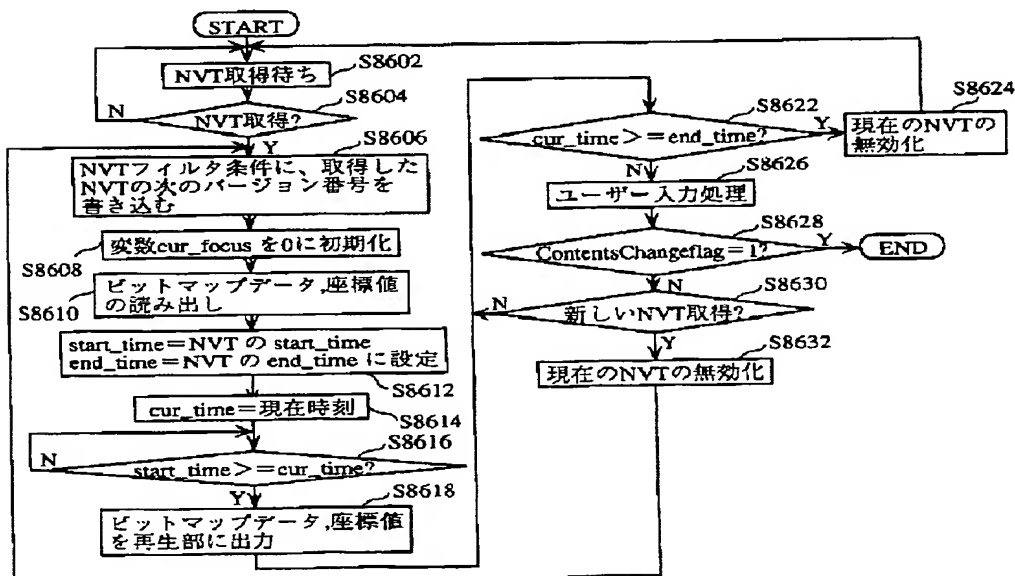 START
NVT取得待ち
S8602
NVT取得?
S8604
N
Y
S8606
NVTフィルタ条件に、取得した
NVTの次のバージョン番号を
書き込む
変数cur_focus を0に初期化
S8608
ビットマップデータ,座標値
の読み出し
S8610
start_time=NVT の start_time
end_time=NVT の end_time に設定
S8612
cur_time=現在時刻
S8614
S8616
start_time>=cur_time?
N
Y
S8618
ビットマップデータ,座標値
を再生部に出力
S8622
cur_time>=end_time?
Y
N
S8624
現在のNVTの
無効化
S8626
ユーザー入力処理
S8628
ContentsChangeflag=1?
Y
END
N
S8630
新しいNVT取得?
N
Y
S8632
現在のNVTの無効化